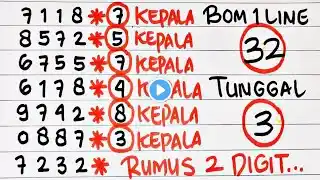 7118*7 KEPALA BOM 1 LINE
8572*5 KEPALA 32
6755*7 KEPALA
6178*4 KEPALA TUNGGAL
9742*8 KEPALA 3
0887*3 KEPALA
7232* RUMUS 2 DIGIT...